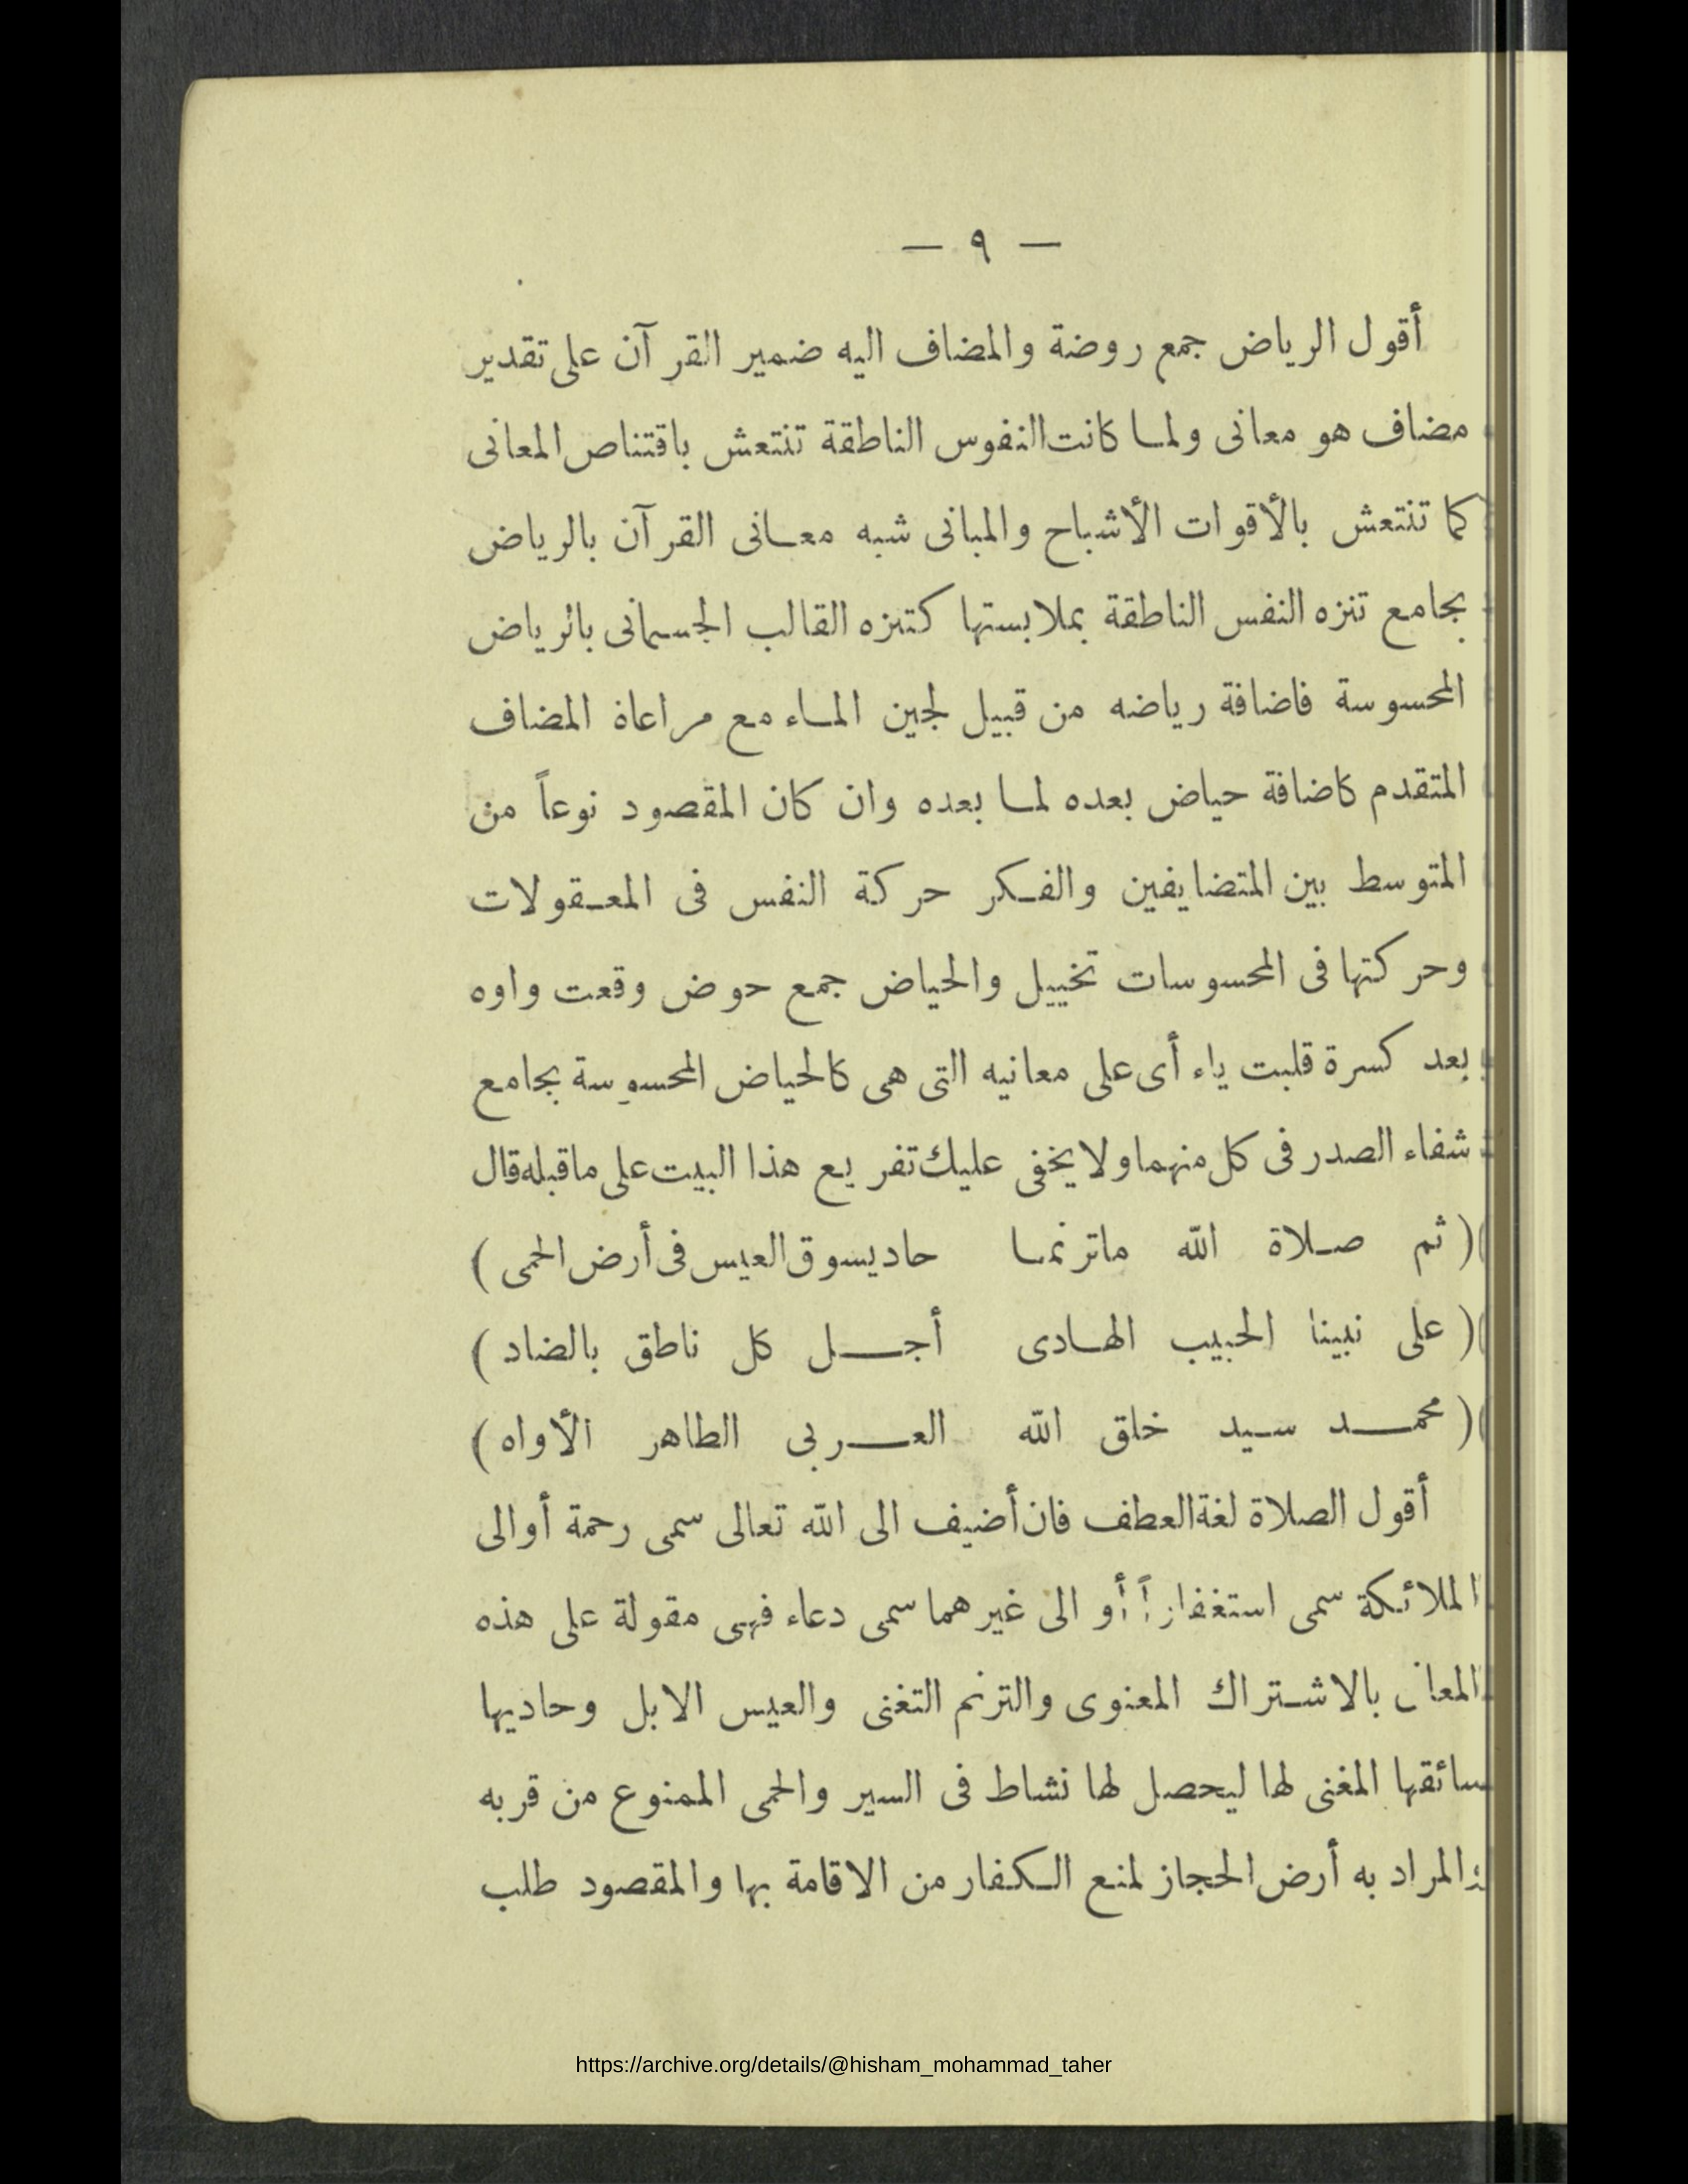 — ٩ —
أقول الرياض جمع روضة والمضاف اليه ضمير القرآن على تقدير
مضاف هو معانى ولما كانت النفوس الناطقة تنتعش باقتناص المعانى
كما تنتعش بالأقوات الأشباح والمبانى شبه معانى القرآن بالرياض
بجامع تنزه النفس الناطقة بملابستها كتنزه القالب الجسمانى بالرياض
المحسوسة فاضافة رياضه من قبيل لجين الماء مع مراعاة المضاف
المتقدم كاضافة حياض بعده لما بعده وان كان المقصود نوعاً من
المتوسط بين المتضايفين والفكر حركة النفس فى المعقولات
وحركتها فى المحسوسات تخييل والحياض جمع حوض وقعت واوه
بعد كسرة قلبت ياء أى على معانيه التى هى كالحياض المحسوسة بجامع
شفاء الصدر فى كل منهما ولا يخفى عليك تفريع هذا البيت على ماقبله قال
(ثم صلاة الله ماترنما حاد يسوق العيس فى أرض الحمى)
(على نبينا الحبيب الهادى أجل كل ناطق بالضاد)
(محمد سيد خلق الله العربى الطاهر الأواه)
أقول الصلاة لغة العطف فان أضيف الى الله تعالى سمى رحمة أو الى
الملائكة سمى استغفاراً أو الى غيرهما سمى دعاء فهى مقولة على هذه
المعان بالاشتراك المعنوى والترنم التغنى والعيس الابل وحاديها
سائقها المغنى لها ليحصل لها نشاط فى السير والحمى الممنوع من قربه
والمراد به أرض الحجاز لمنع الكفار من الاقامة بها والمقصود طلب
https://archive.org/details/@hisham_mohammad_taher